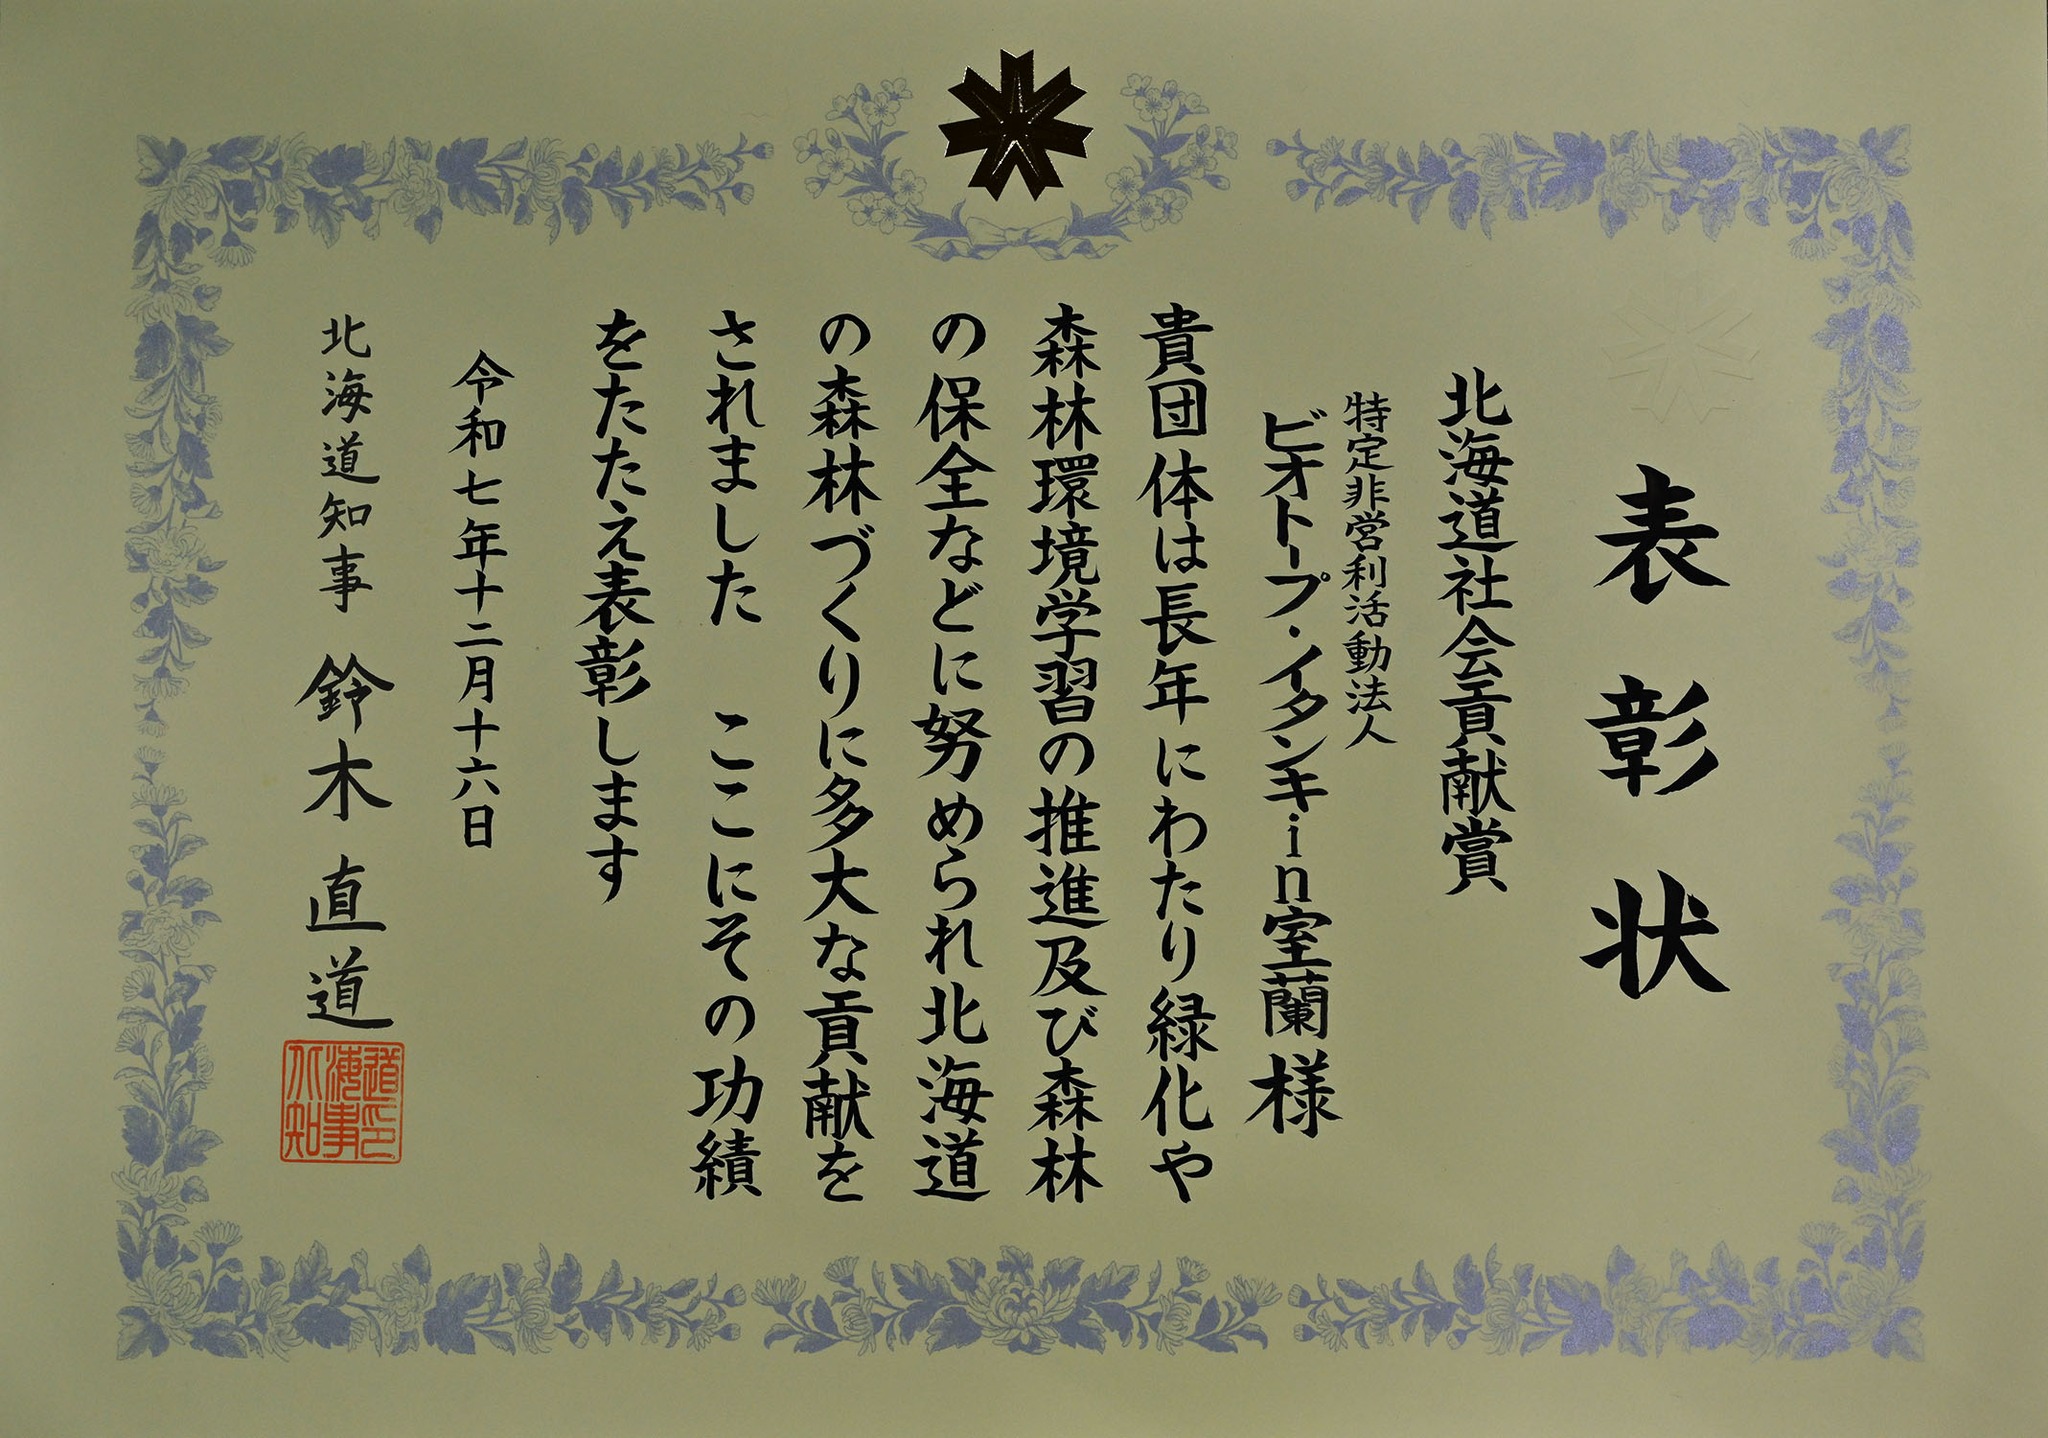 表彰状
北海道社会貢献賞
特定非営利活動法人
ビオトープ・イタンキin室蘭様
貴団体は長年にわたり緑化や
森林環境学習の推進及び森林
の保全などに努められ北海道
の森林づくりに多大な貢献を
されました　ここにその功績
をたたえ表彰します
令和七年十二月十六日
北海道知事　鈴木直道
北海道知事之印